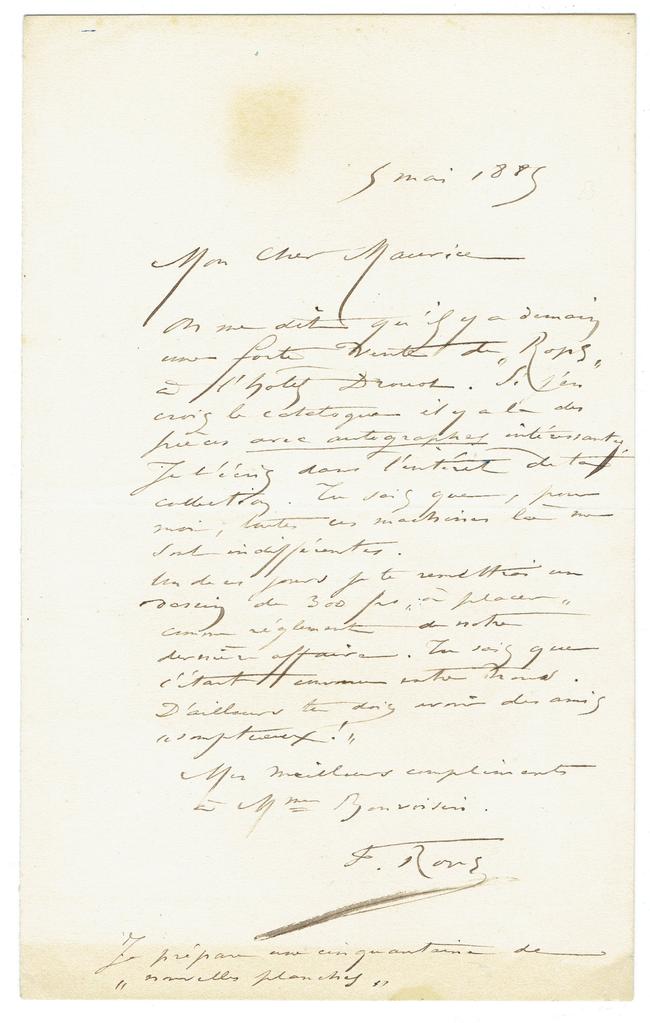 5 mai 1885
Mon Cher Maurice
On me dit qu'il y a demain
une forte Vente de „Rops„
à l'hotel Drouot. Si j'en
crois le catalogue il y a là des
pièces avec autographes intéressants,
Je t'écris dans l'intérêt de ta
collection. Tu sais que, pour
moi, toutes ces machines là me
sont indifférentes.
Un de ces jours je te remettrai un
dessin de 300 frs „à placer„
comme réglement de notre
dernière affaire. Tu sais que
c'était convenu entre nous.
D'ailleurs tu dois avoir des amis
„somptueux!„
Mes meilleurs compliments
à Mme Bonvoisin.
F. Rops
Je prépare une cinquantaine de
„nouvelles planches„